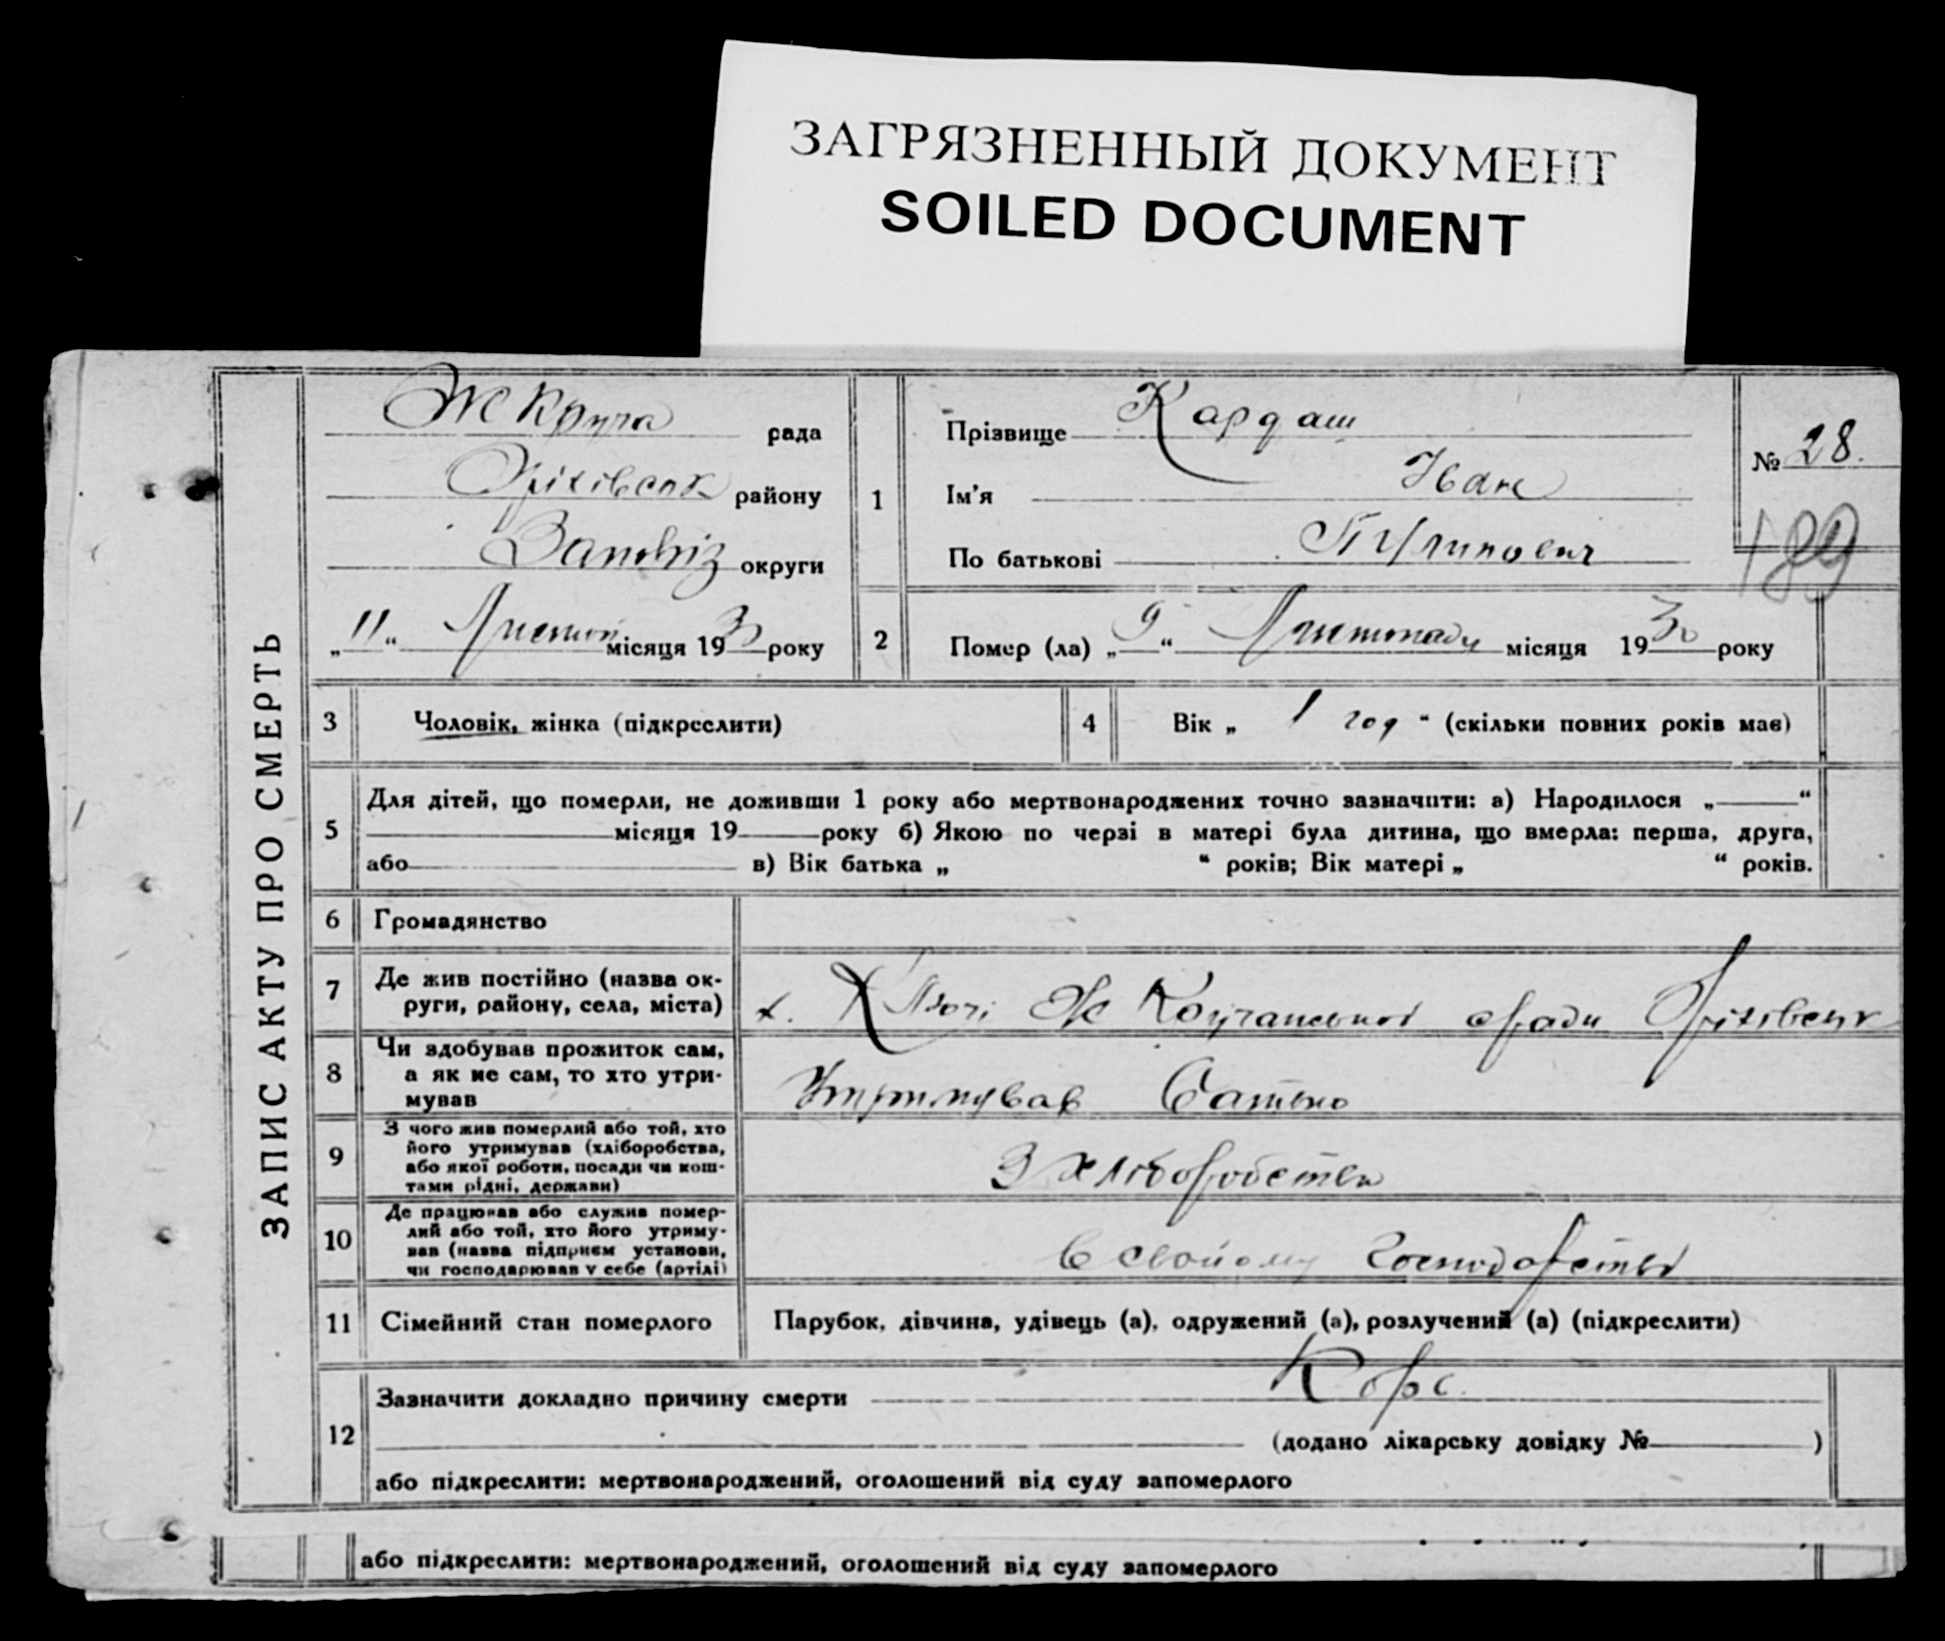 ЗАГРЯЗНЕННЫЙ ДОКУМЕНТ
SOILED DOCUMENT
ЗАПИС АКТУ ПРО СМЕРТЬ
рада
району
округи
„11“ місяця 1930 року
1
Прізвище Кардаш
Ім'я Іван
По батькові
№ 28.
189
2
Помер (ла) „9“ Листопаду місяця 1930 року
3 Чоловік, жінка (підкреслити)
4 Вік „ 1 год “ (скільки повних років має)
5
Для дітей, що померли, не доживши 1 року або мертвонароджених точно зазначити: а) Народилося „ “
місяця 19 року б) Якою по черзі в матері була дитина, що вмерла: перша, друга,
або в) Вік батька „ “ років; Вік матері „ “ років.
6 Громадянство
7 Де жив постійно (назва ок-
руги, району, села, міста)
х. ради Оріхівськ
8 Чи здобував прожиток сам,
а як не сам, то хто утри-
мував
Утримував батько
9 З чого жив померлий або той, хто
його утримував (хліборобства,
або якої роботи, посади чи кош-
тами рідні, держави)
З хліборобства
10 Де працював або служив помер-
лий або той, хто його утриму-
вав (назва підприєм установи,
чи господарював у себе (артілі)
в свойому господарстві
11 Сімейний стан померлого
Парубок, дівчина, удівець (а), одружений (а), розлучений (а) (підкреслити)
12
Зазначити докладно причину смерти Корс.
(додано лікарську довідку № )
або підкреслити: мертвонароджений, оголошений від суду запомерлого
або підкреслити: мертвонароджений, оголошений від суду запомерлого